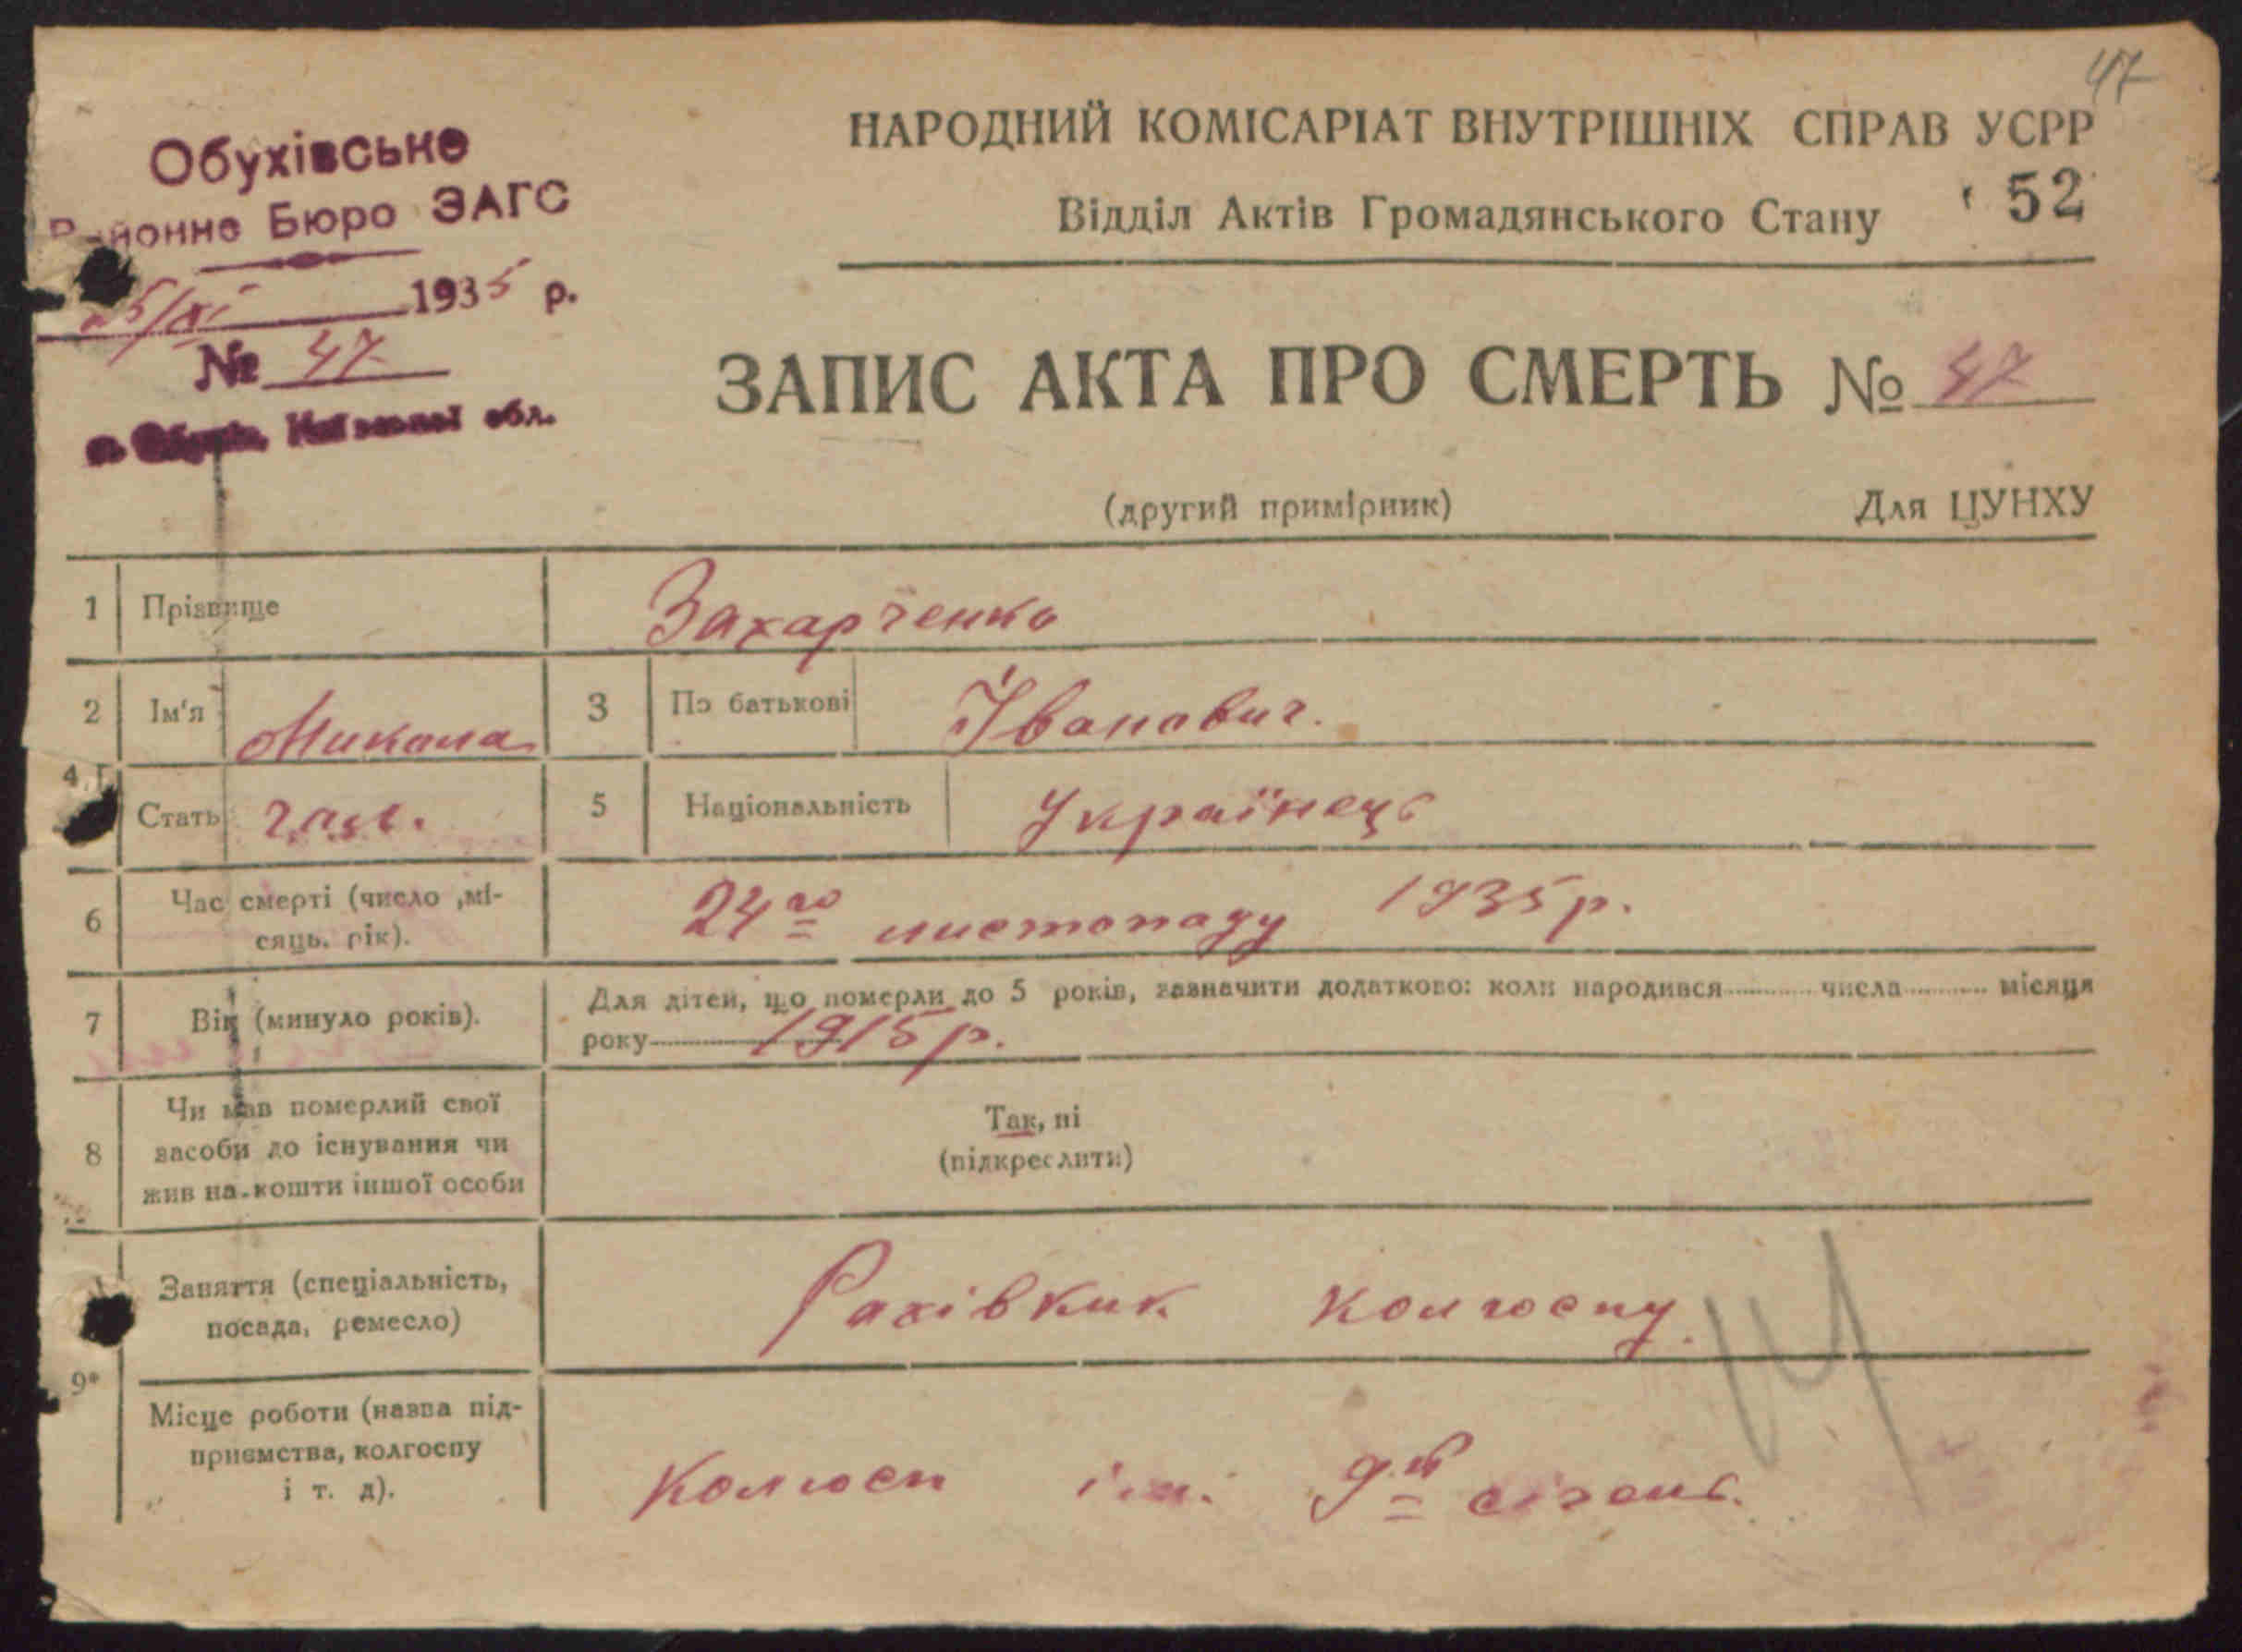 47
Обухівське
Районне Бюро ЗАГС
25/XI 1935 р.
№ 47
Київської обл.
НАРОДНИЙ КОМІСАРІАТ ВНУТРІШНІХ СПРАВ УСРР
Відділ Актів Громадянського Стану
52
ЗАПИС АКТА ПРО СМЕРТЬ № 47
(другий примірник)
Для ЦУНХУ
1 Прізвище Захарченко
2 Ім'я Микола 3 По батькові Іванович.
4 Стать чол. 5 Національність Українець
6 Час смерті (число ,мі-
сяць, рік).
24го листопаду 1935 р.
7 Вік (минуло років).
Для дітей, що померли до 5 років, зазначити додатково: коли народився числа місяця
року 1915 р.
8 Чи мав померлий свої
засоби до існування чи
жив на кошти іншої особи
Так, ні
(підкреслити)
9 Заняття (спеціальність,
посада, ремесло)
Рахівник колгоспу.
Місце роботи (назва під-
приємства, колгоспу
і т. д).
Колгосп ім. 9те січень.